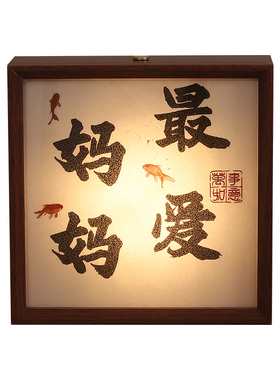 最爱
妈妈
萬事
如意